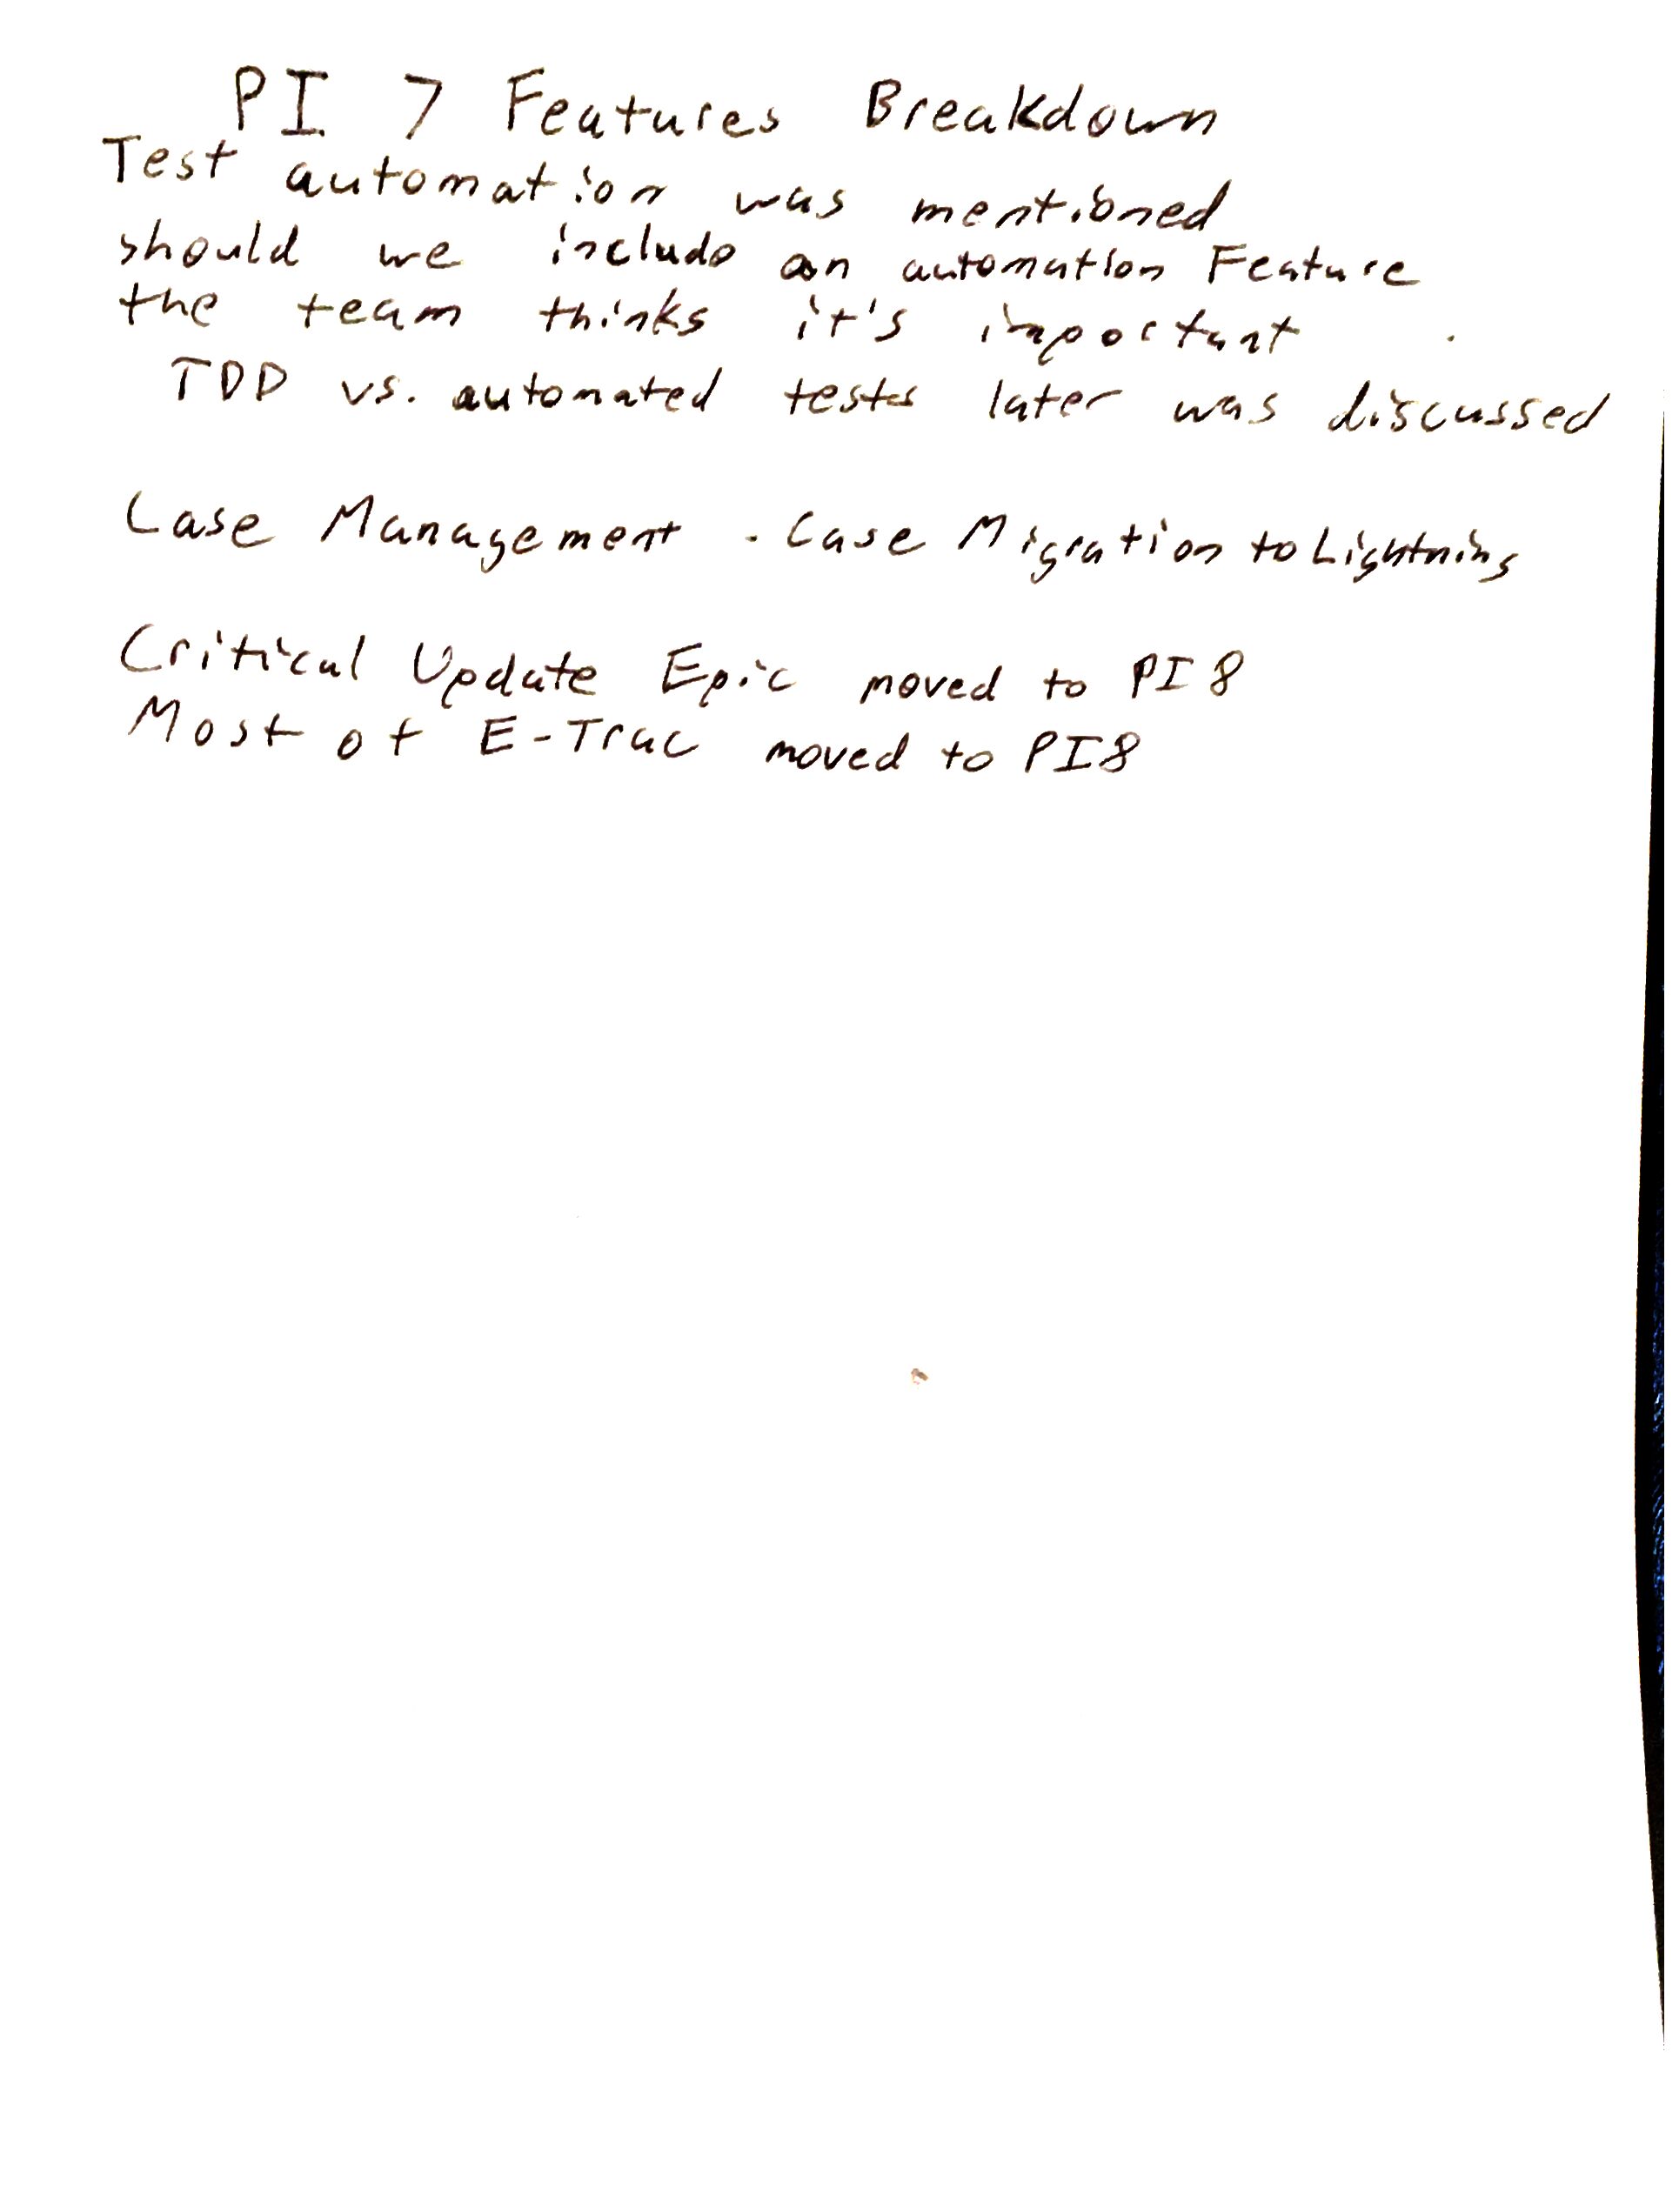 PI 7 Features Breakdown
Test automation was mentioned
should we include an automation Feature
the team thinks it's important
TDD vs. automated tests later was discussed
Case Management - Case Migration to Lightning
Critical Update Epic moved to PI 8
Most of E-Trac moved to PI8